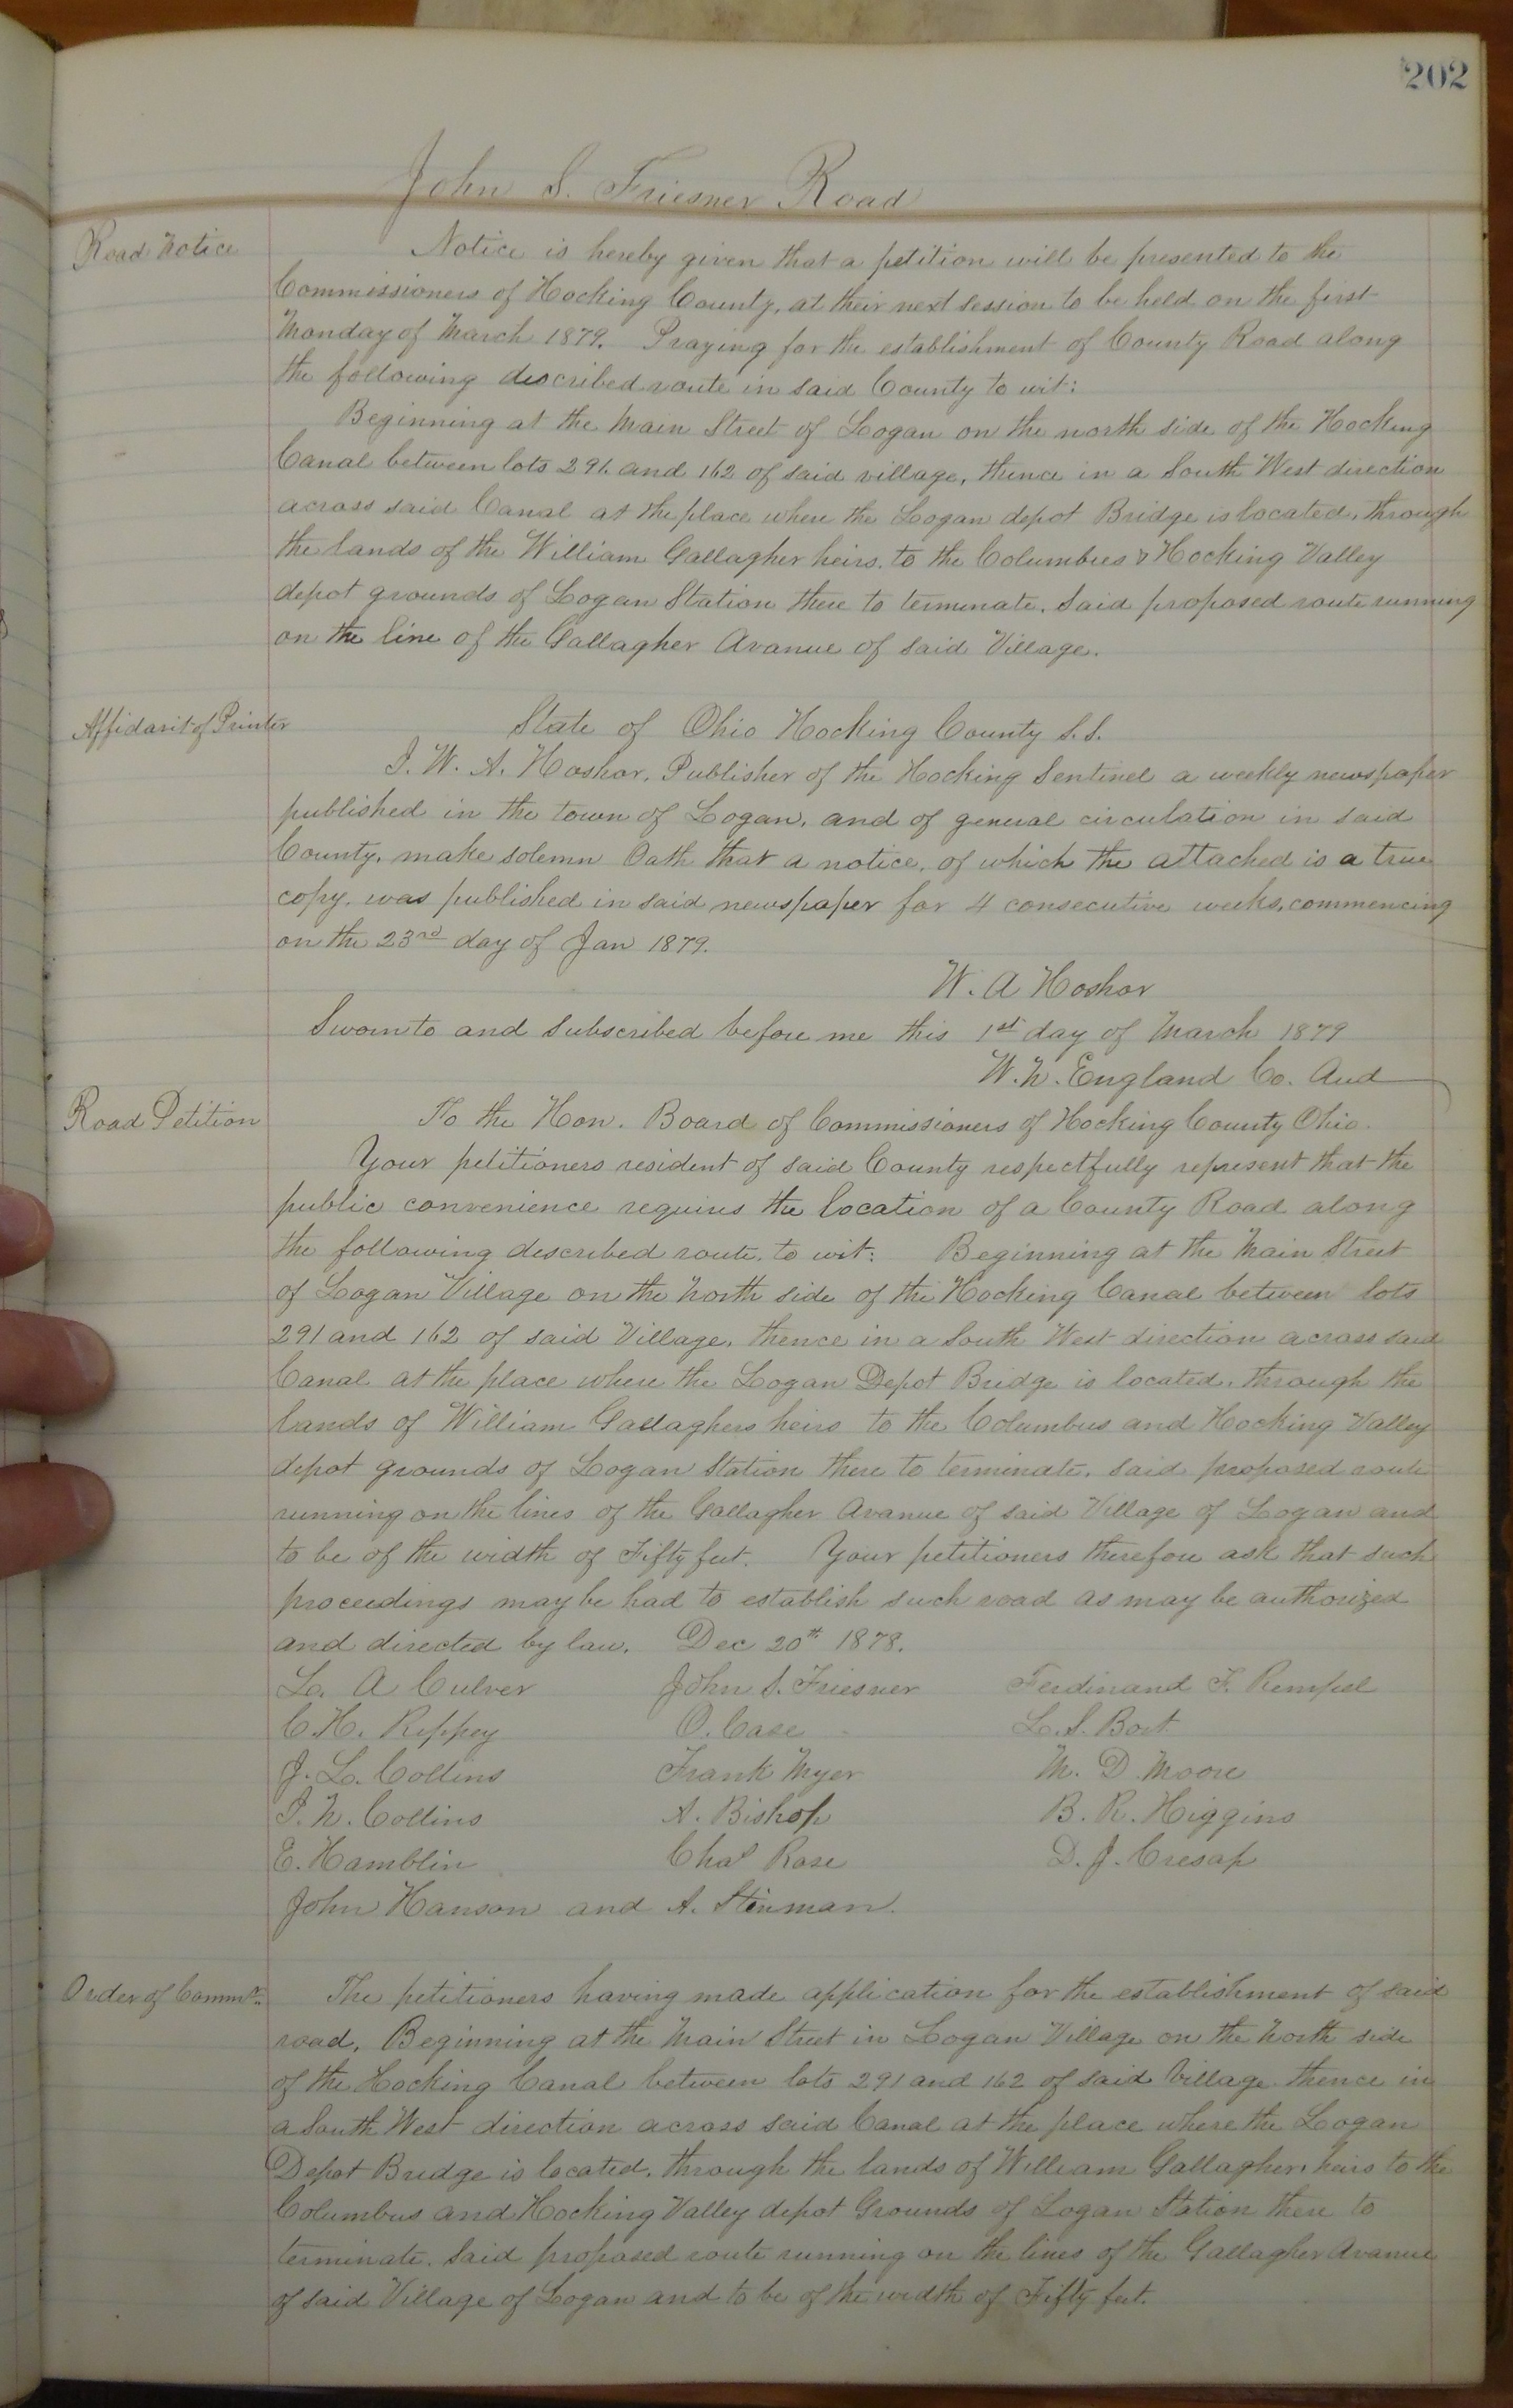 202
John S. Friesner Road
Road Notice
Notice is hereby given that a petition will be presented to the
Commissioners of Hocking County, at their next session to be held on the first
Monday of March 1879. Praying for the establishment of County Road along
the following described route in said County to wit:
Beginning at the Main Street of Logan on the north side of the Hocking
Canal between lots 291 and 162 of said village, thence in a South West direction
across said Canal at the place where the Logan depot Bridge is located, through
the lands of the William Gallagher heirs. to the Columbus & Hocking Valley
depot grounds of Logan Station there to terminate. Said proposed route running
on the line of the Gallagher Avanue of said Village.
Affidavit of Printer
State of Ohio Hocking County S.S.
I. W. A. Hoshor, Publisher of the Hocking Sentinel a weekly newspaper
published in the town of Logan, and of general circulation in said
County, make solemn Oath that a notice, of which the attached is a true
copy. was published in said newspaper for 4 consecutive weeks, commencing
on the 23rd day of Jan 1879.
W. A Hoshor
Sworn to and Subscribed before me this 1st day of March 1879
W. W. England Co. Aud
Road Petition
To the Hon. Board of Commissioners of Hocking County Ohio.
Your petitioners resident of said County respectfully represent that the
public convenience requires the location of a County Road along
the following described route. to wit: Beginning at the Main Street
of Logan Village on the North side of the Hocking Canal between lots
291 and 162 of said Village, thence in a South West direction across said
Canal at the place where the Logan Depot Bridge is located, through the
lands of William Gallaghers heirs to the Columbus and Hocking Valley
depot grounds of Logan Station there to terminate. said proposed route
running on the lines of the Gallagher Avanue of said Village of Logan and
to be of the width of Fifty feet. Your petitioners therefore ask that such
proceedings may be had to establish such road as may be authorized
and directed by law. Dec 20th 1878.
L. A Culver John S. Friesner Ferdinand F. Rempel
C. H. Rippey O. Case L. S. Bort
J. L. Collins Frank Myer M. D. Moore
I. N. Collins A. Bishop B. R. Higgins
E. Hamblin Chas Rose D. J. Cresap
John Hanson and A. Steinman.
Order of Commrs
The petitioners having made application for the establishment of said
road, Beginning at the Main Street in Logan Village on the North side
of the Hocking Canal between lots 291 and 162 of said Village thence in
a South West direction across said Canal at the place where the Logan
Depot Bridge is located, through the lands of William Gallaghers heirs to the
Columbus and Hocking Valley depot Grounds of Logan Station there to
terminate. Said proposed route running on the lines of the Gallagher Avanue
of said Village of Logan and to be of the width of Fifty feet.